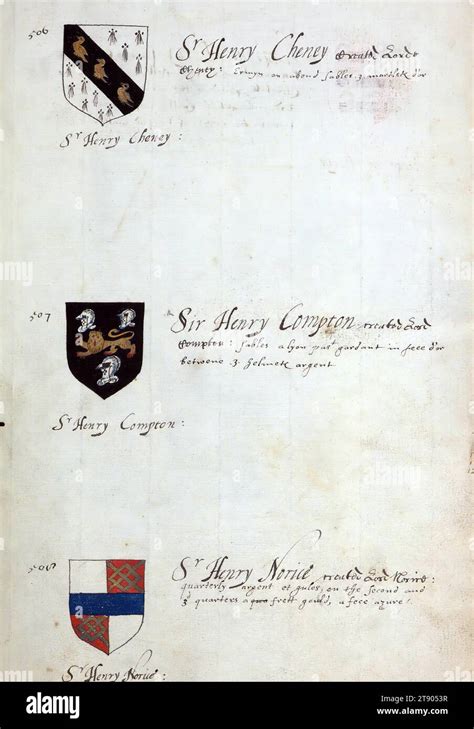 506
Sr Henry Cheney Created Lord
Cheney: Ermyn on a bend sables 3 martlets d'or
Sr Henry Cheney:
507
Sir Henry Compton created Lord
Compton: sables a lyon pas gardant in fece d'or
betwene 3 helmets argent
Sr Henry Compton:
508
Sr Henry Norice created Lord Norice:
quarterly argent et gules, on the second and
3 quarters a frett gould, a fece azure.
Sr Henry Norice:
alamy
Image ID: 2T9053R
www.alamy.com